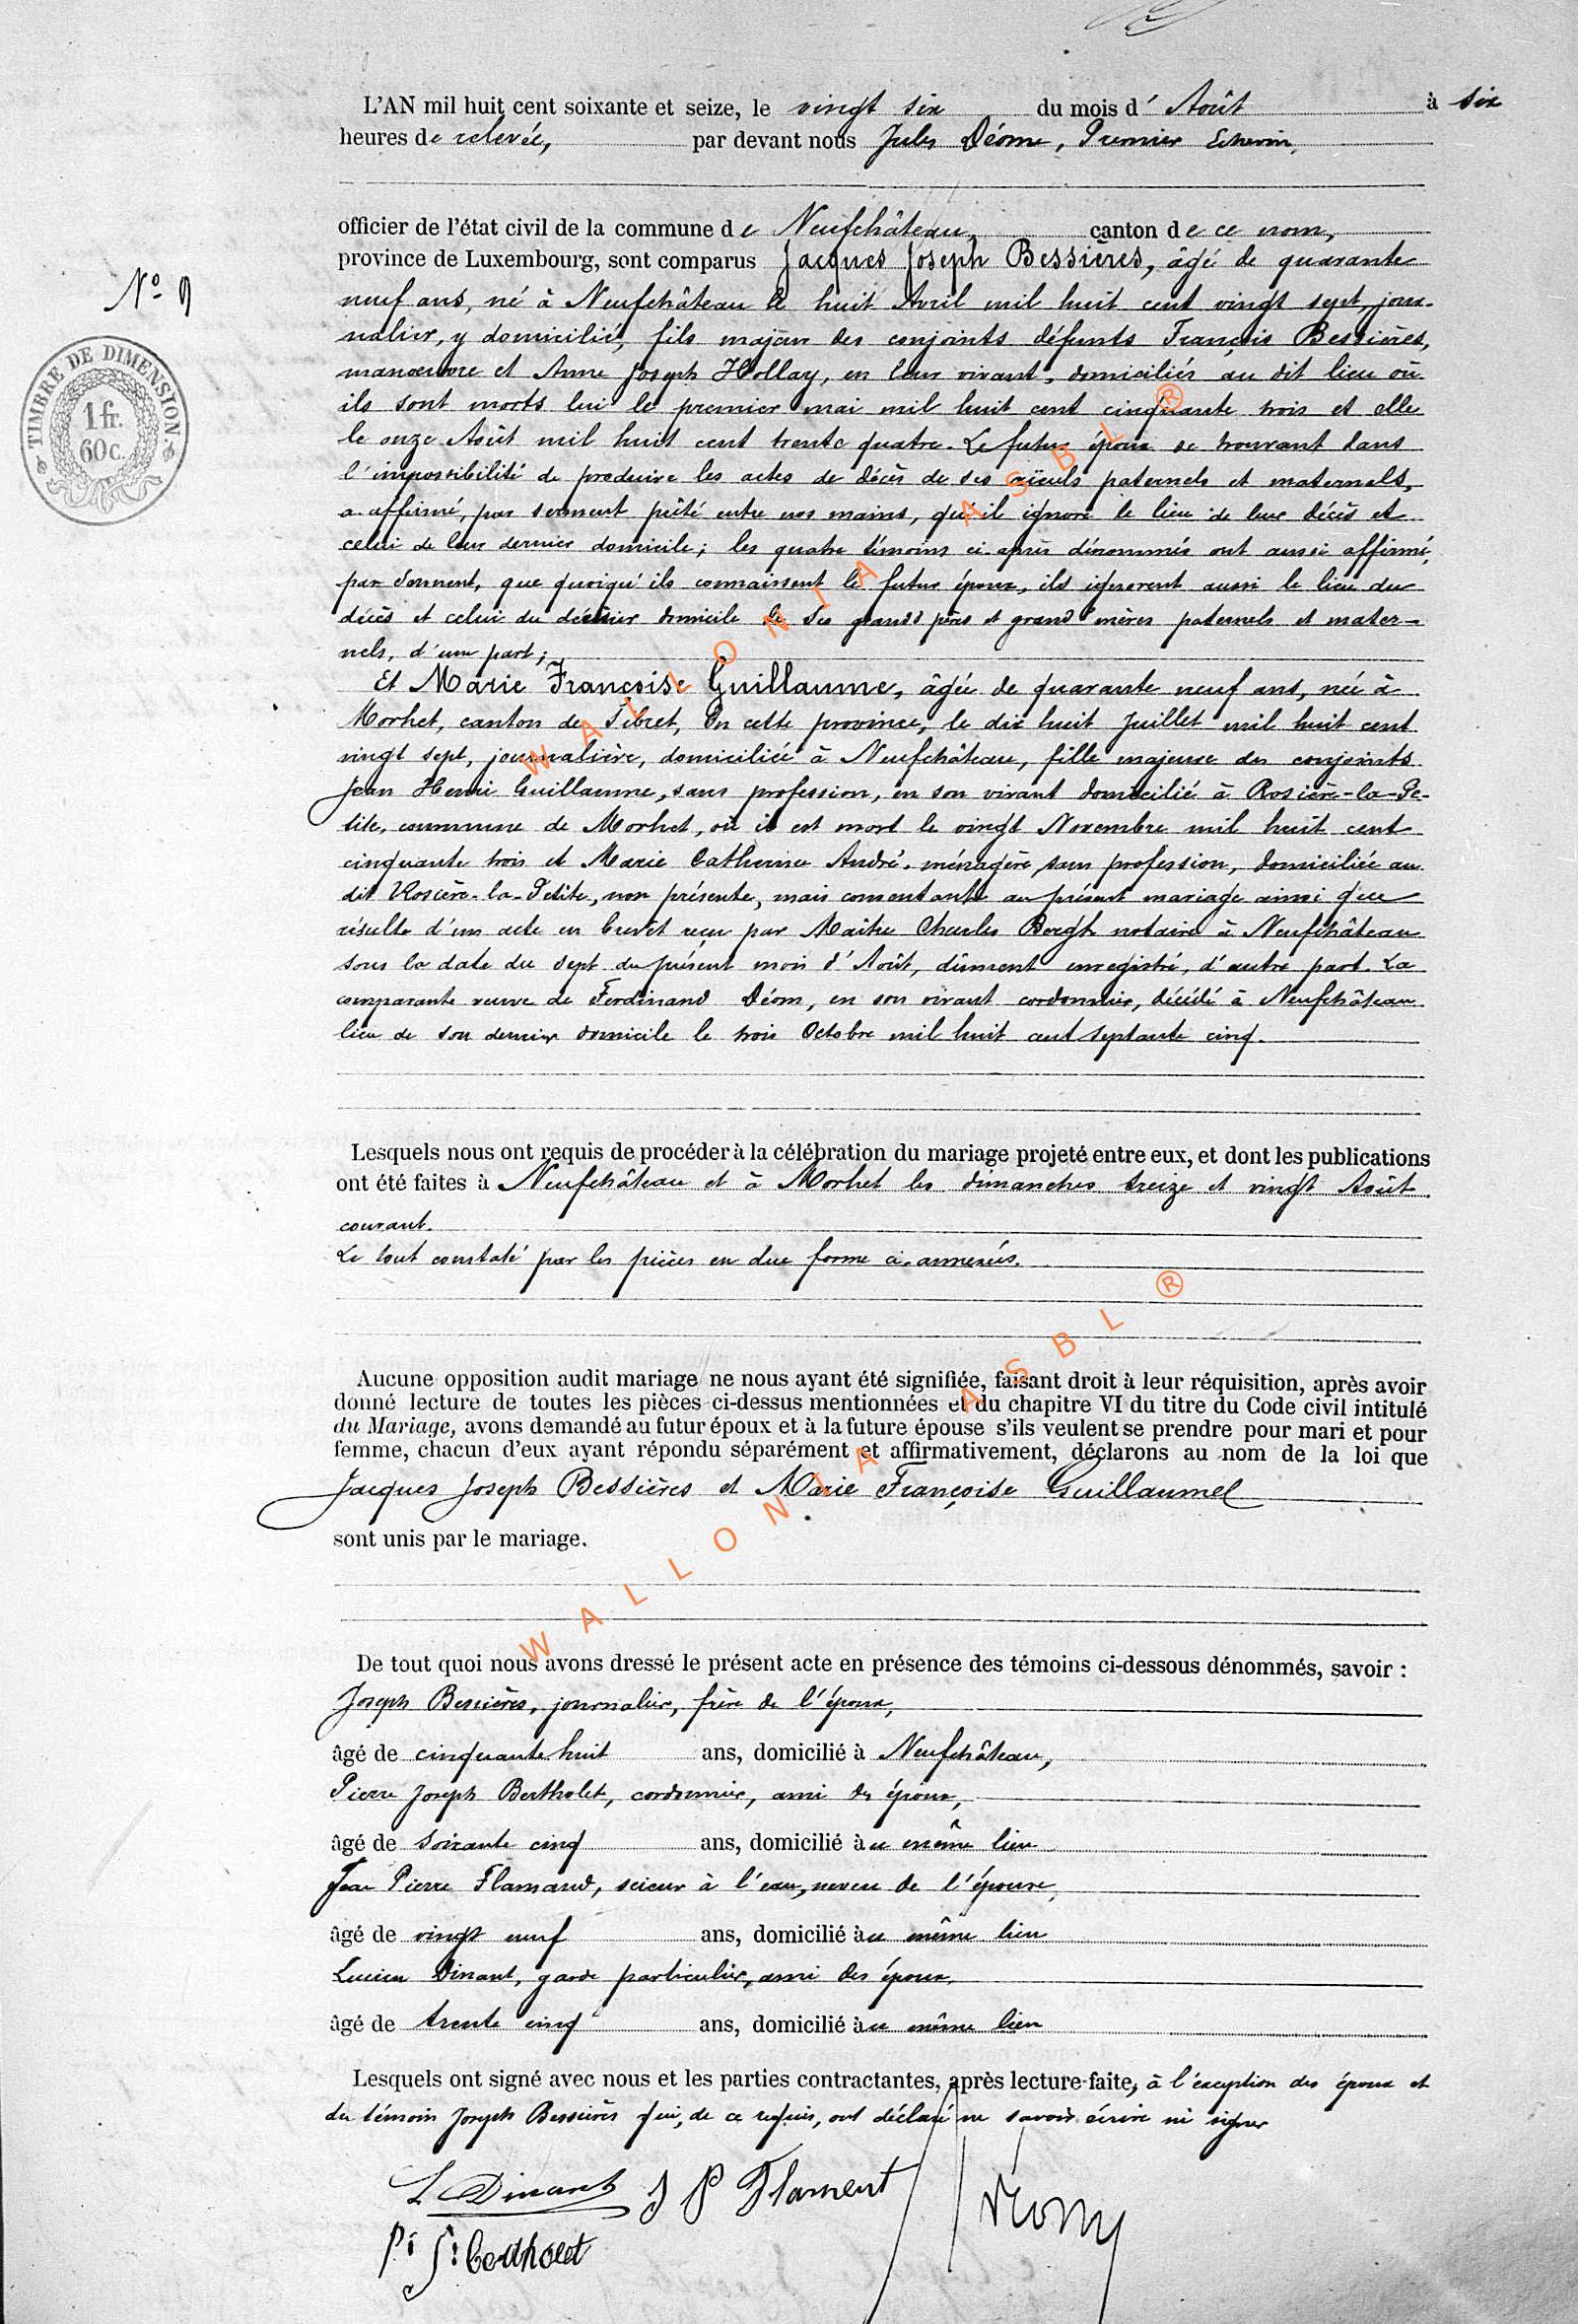 L'AN mil huit cent soixante et seize, le vingt six du mois d' Août à six
heures de relevée, par devant nous Jules Déome, Premier Echevin,
officier de l'état civil de la commune de Neufchâteau, canton de ce nom,
province de Luxembourg, sont comparus Jacques Joseph Bessières, âgé de quarante
N° 9
neuf ans, né à Neufchâteau le huit Avril mil huit cent vingt sept, jour-
nalier, y domicilié, fils majeur des conjoints défunts François Bessières,
manoeuvre et Anne Joseph Hollay, en leur vivant, domiciliés au dit lieu où
TIMBRE DE DIMENSION.
1 fr.
60 c.
ils sont morts lui le premier mai mil huit cent cinquante trois et elle
le onze Août mil huit cent trente quatre. Le futur époux se trouvant dans
l'impossibilité de produire les actes de décès de ses aïeuls paternels et maternels,
a affirmé, par serment prêté entre nos mains, qu'il ignore le lieu de leur décès et
celui de leur dernier domicile; les quatre témoins ci-après dénommés ont aussi affirmé,
par serment, que quoiqu'ils connaissent le futur époux, ils ignorent aussi le lieu du
décès et celui du dernier domicile de ses grands pères et grand'mères paternels et mater-
nels, d'une part;
Et Marie Françoise Guillaume, âgée de quarante neuf ans, née à
Morhet, canton de Sibret, en cette province, le dix huit Juillet mil huit cent
vingt sept, journalière, domiciliée à Neufchâteau, fille majeure des conjoints
Jean Henri Guillaume, sans profession, en son vivant domicilié à Rosière-la-Pe-
tite, commune de Morhet, où il est mort le vingt Novembre mil huit cent
cinquante trois et Marie Catherine André, ménagère, sans profession, domiciliée au
dit Rosière-la-Petite, non présente, mais consentante au présent mariage ainsi que
résulte d'un acte en brevet reçu par Maître Charles Bergh notaire à Neufchâteau
sous la date du sept du présent mois d'Août, dûment enregistré, d'autre part. La
comparante veuve de Ferdinand Déom, en son vivant cordonnier, décédé à Neufchâteau
lieu de son dernier domicile le trois Octobre mil huit cent septante cinq.
WALLONIA ASBL ®
Lesquels nous ont requis de procéder à la célébration du mariage projeté entre eux, et dont les publications
ont été faites à Neufchâteau et à Morhet les dimanches treize et vingt Août
courant.
Le tout constaté par les pièces en due forme ci-annexées.
Aucune opposition audit mariage ne nous ayant été signifiée, faisant droit à leur réquisition, après avoir
donné lecture de toutes les pièces ci-dessus mentionnées et du chapitre VI du titre du Code civil intitulé
du Mariage, avons demandé au futur époux et à la future épouse s'ils veulent se prendre pour mari et pour
femme, chacun d'eux ayant répondu séparément et affirmativement, déclarons au nom de la loi que
Jacques Joseph Bessières et Marie Françoise Guillaume
sont unis par le mariage.
WALLONIA ASBL ®
De tout quoi nous avons dressé le présent acte en présence des témoins ci-dessous dénommés, savoir :
Joseph Bessières, journalier, frère de l'époux,
âgé de cinquante huit ans, domicilié à Neufchâteau,
Pierre Joseph Bertholet, cordonnier, ami des époux,
âgé de soixante cinq ans, domicilié au même lieu
Jean Pierre Flamand, scieur à l'eau, neveu de l'épouse,
âgé de vingt neuf ans, domicilié au même lieu
Lucien Dinant, garde particulier, ami des époux,
âgé de trente cinq ans, domicilié au même lieu
Lesquels ont signé avec nous et les parties contractantes, après lecture faite, à l'exception des époux et
du témoin Joseph Bessières qui, de ce requis, ont déclaré ne savoir écrire ni signer
L Dinant J P Flament
Pi Jh bertholet